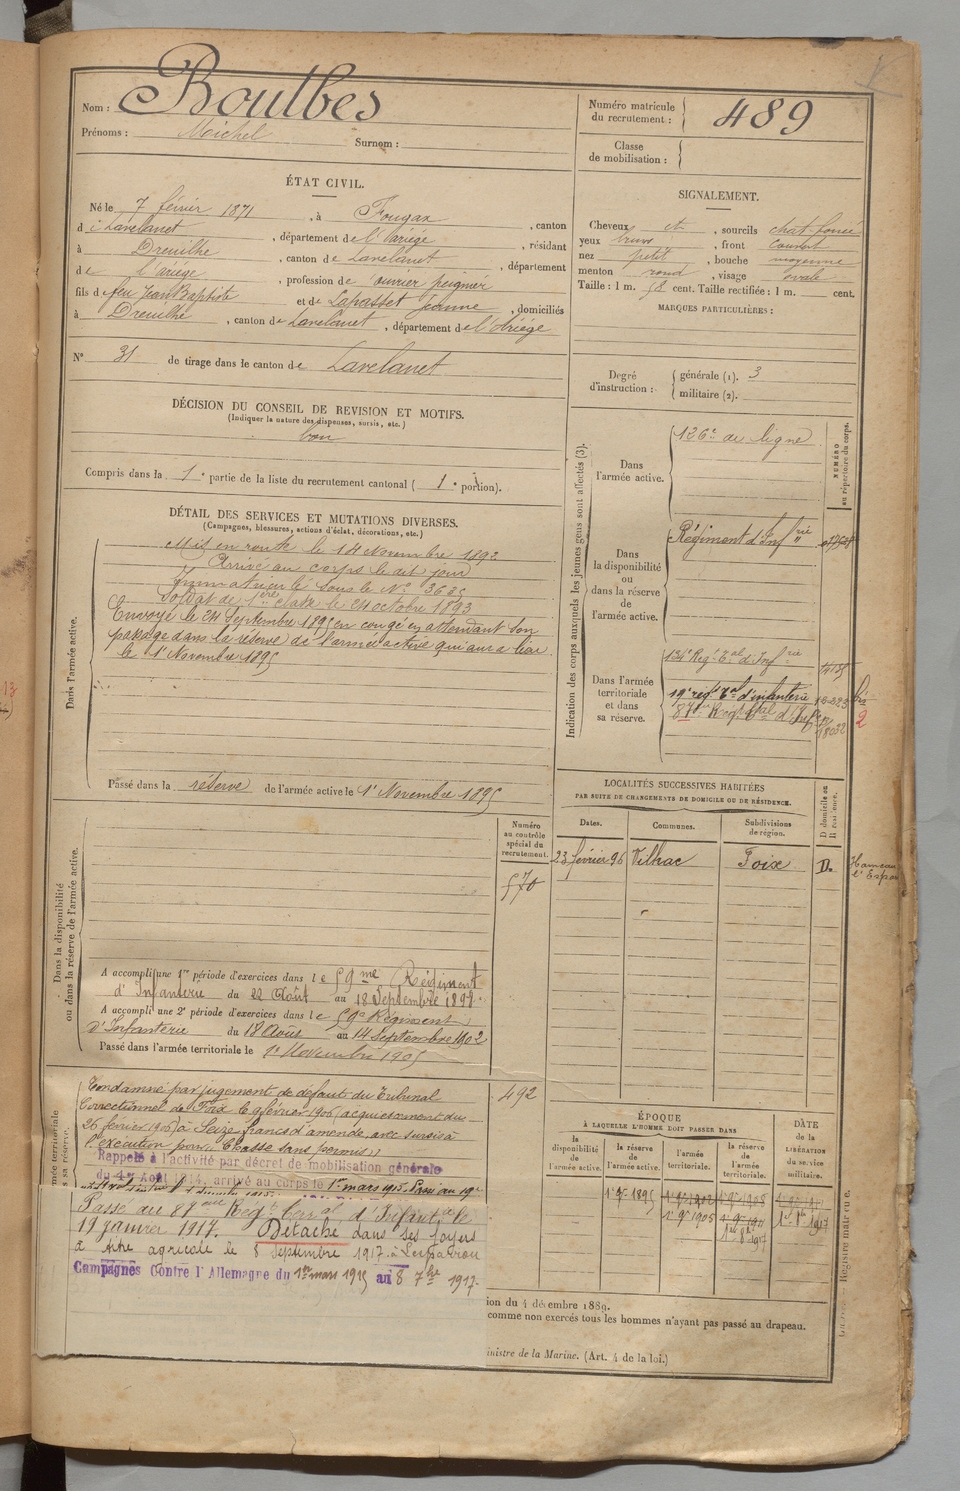 Nom : Boulbes
Prénoms : Michel Surnom :
Numéro matricule
du recrutement : 489
Classe
de mobilisation :
ÉTAT CIVIL.
Né le 7 février 1871, à Fougax, canton
de Lavelanet, département de l'Ariége, résidant
à Dreuilhe, canton de Lavelanet, département
de l'ariége, profession de ouvrier peignier
fils de feu Jean Baptiste et de Lapasset Jeanne, domiciliés
à Dreuilhe, canton de Lavelanet, département de l'Ariége
N° 31 de tirage dans le canton de Lavelanet
SIGNALEMENT.
Cheveux et, sourcils chat-foncé
yeux bruns, front couvert
nez petit, bouche moyenne
menton rond, visage ovale
Taille : 1 m. 58 cent. Taille rectifiée : 1 m. cent.
MARQUES PARTICULIÈRES :
Degré
d'instruction :
générale (1). 3
militaire (2).
DÉCISION DU CONSEIL DE REVISION ET MOTIFS.
(Indiquer la nature des dispenses, sursis, etc.)
bon
Compris dans la 1e partie de la liste du recrutement cantonal ( 1e portion).
DÉTAIL DES SERVICES ET MUTATIONS DIVERSES.
(Campagnes, blessures, actions d'éclat, décorations, etc.)
Dans l'armée active.
Mis en route le 14 Novembre 1892
Arrivé au corps le dit jour
Immatriculé sous le N° 3625
Soldat de 1ère classe le 24 octobre 1893
Envoyé le 24 Septembre 1895 en congé en attendant son
passage dans la réserve de l'armée active qui aura lieu
le 1er Novembre 1895
Passé dans la réserve de l'armée active le 1er Novembre 1895
Indication des corps auxquels les jeunes gens sont affectés (3).
NUMÉRO
au répertoire du corps.
Dans
l'armée active.
126e de ligne
Dans
la disponibilité
ou
dans la réserve
de
l'armée active.
Régiment d'Infrie
Dans l'armée
territoriale
et dans
sa réserve.
134e Regt Tal d'Infrie
19e regt Tal d'infanterie
87me Regt Tal d'Infie
18032
bis
2
Dans la disponibilité
ou dans la réserve de l'armée active.
Numéro
au contrôle
spécial du
recrutement.
570
A accompli une 1re période d'exercices dans le 59me Régiment
d'Infanterie du 22 Août au 18 Septembre
A accompli une 2e période d'exercices dans le 59e Régiment
d'Infanterie du 18 Août au 14 Septembre 1902
Passé dans l'armée territoriale le 1er Novembre 1905
LOCALITÉS SUCCESSIVES HABITÉES
PAR SUITE DE CHANGEMENTS DE DOMICILE OU DE RÉSIDENCE.
Dates. Communes. Subdivisions
de région. D domicile ou
R résidence.
23 février 96 Vilhac Foix D. Hameau
492
Condamné par jugement de défaut du Tribunal
Correctionnel de Foix le 9 février 1906 (acquiescement du
26 février 1906) à Seize francs d'amende, avec sursis à
l'exécution pour: Chasse sans permis.
Rappelé à l'activité par décret de mobilisation générale
du Août 1914, arrivé au corps le 1er mars 1915. Passé au 19e
Passé au 87me Regt terral d'Infantie le
19 janvier 1917. Détaché dans ses foyers
à titre agricole le 8 Septembre 1917
Campagnes Contre l'Allemagne du 1er mars 1915 au 8 7bre 1917.
ÉPOQUE
À LAQUELLE L'HOMME DOIT PASSER DANS
DATE
de la
LIBÉRATION
du service
militaire.
la
disponibilité
de
l'armée active.
la réserve
de
l'armée active.
l'armée
territoriale.
la réserve
de
l'armée
territoriale.
1er 9bre 1895
1er 9bre 1905
ion du 4 décembre 1889.
comme non exercés tous les hommes n'ayant pas passé au drapeau.
inistre de la Marine. (Art. 4 de la loi.)